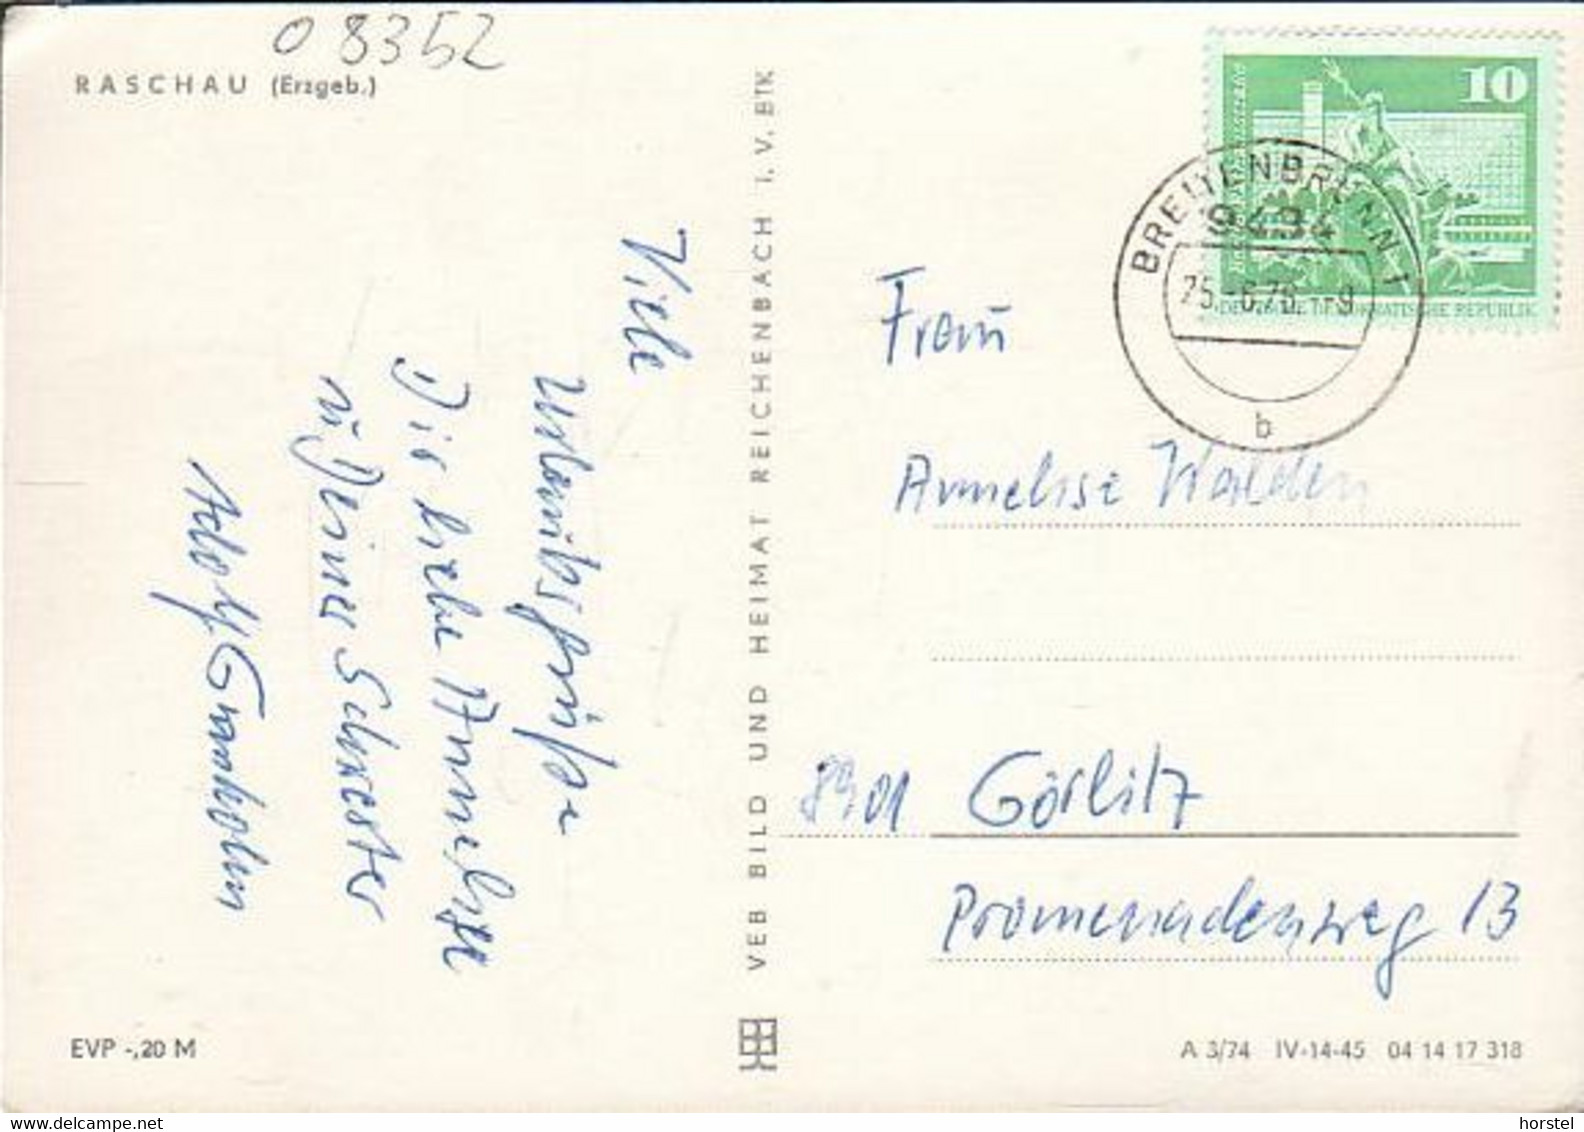 08352
RASCHAU (Erzgeb.)
Viele
Urlaubsgrüße
Dir liebe Anneliese
u. Deiner Schwester
Adolf
EVP -,20 M
VEB BILD UND HEIMAT REICHENBACH I. V. BTK
10
DEUTSCHE DEMOKRATISCHE REPUBLIK
BREITENBRUNN 1
9434
b
Frau
Anneliese Walden
8901 Görlitz
Promenadenweg 13
A 3/74 IV-14-45 04 14 17 318
delcampe.net
horstel